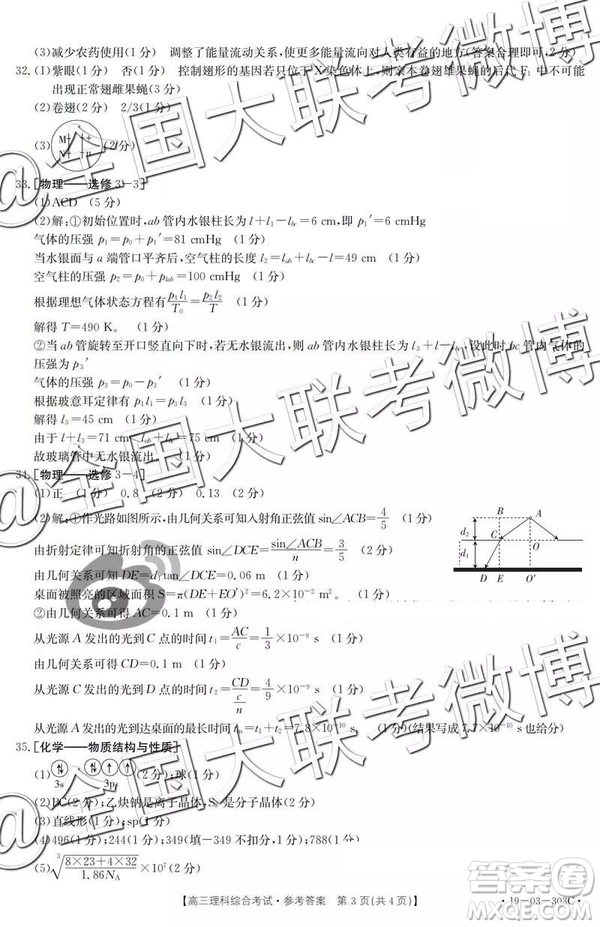 (3)减少农药使用(1分) 调整了能量流动关系,使能量更多地流向对人类有益的地方(答案合理即可,2分)
32.(1)紫眼(1分) 否(1分) 控制翅形的基因若只位于X染色体上,则亲本卷翅雄果蝇的后代F₁中不可能
出现正常翅雌果蝇(3分)
(2)卷翅(2分) 2/3(1分)
(3) (2分)
33.[物理——选修3-3]
(1)ACD (5分)
(2)解:①初始位置时,ab管内水银柱长为l+l₁-l_bc=6 cm,即p₁′=6 cmHg
气体的压强p₁=p₀+p₁′=81 cmHg (1分)
当水银面与a端管口平齐后,空气柱的长度l₂=l_ab+l_bc-l=49 cm (1分)
空气柱的压强p₂=p₀+p_ab=100 cmHg (1分)
根据理想气体状态方程有p₁l₁/T₀=p₂l₂/T (1分)
解得T=490 K。 (1分)
②当ab管旋转至开口竖直向下时,若无水银流出,则ab管内水银柱的长为l₃+l-l_bc,设此时bc管内气体的
压强为p₃′
气体的压强 (1分)
根据玻意耳定律有p₁l₁=p₃l₃ (1分)
解得l₃=45 cm (1分)
由于l+l₃=71 cm l_ab+l_bc=75 cm (1分)
故玻璃管中无水银流出。 (1分)
34.[物理——选修3-4]
(1)正 (1分) 0.8 (2分) 0.13 (2分)
(2)解:①作光路如图所示,由几何关系可知入射角正弦值sin∠ACB=4/5 (1分)
由折射定律可知折射角正弦值sin∠DCE=sin∠ACB/n=3/5 (2分)
由几何关系可知DE=d₁tan∠DCE=0.06 m (1分)
桌面被照亮的区域面积S=π(DE+EO′)²=6.2×10⁻² m²。 (1分)
②由几何关系可得AC=0.1 m (1分)
从光源A发出的光到C点的时间t₁=AC/c=1/3×10⁻⁹ s (1分)
由几何关系可得CD=0.1 m (1分)
从光源A发出的光到C点的时间t₂=CD/(c/n)=4/9×10⁻⁹ s (1分)
从光源A发出的光到达桌面的最长时间t=t₁+t₂=7.8×10⁻¹⁰ s (1分) (结果写成7.7×10⁻¹⁰ s也给分)
B A
d₂
C O
d₁
D E O′
35.[化学——物质结构与性质]
(1) 3s 3p (2分);球(1分)
(2)DC(2分);乙炔钠是离子化合物,氯乙炔是分子晶体(2分)
(3)直线形(1分);sp(1分)
(4)496(1分);249(1分);349(填-349不扣分,1分);788(1分)
(5)∛((8×23+4×32)/1.86N_A)×10⁷(2分)
【高三理科综合考试·参考答案 第3页(共4页)】
·19-03-303C·
@全国大联考微博
@全国大联考微博
@全国大联考微博